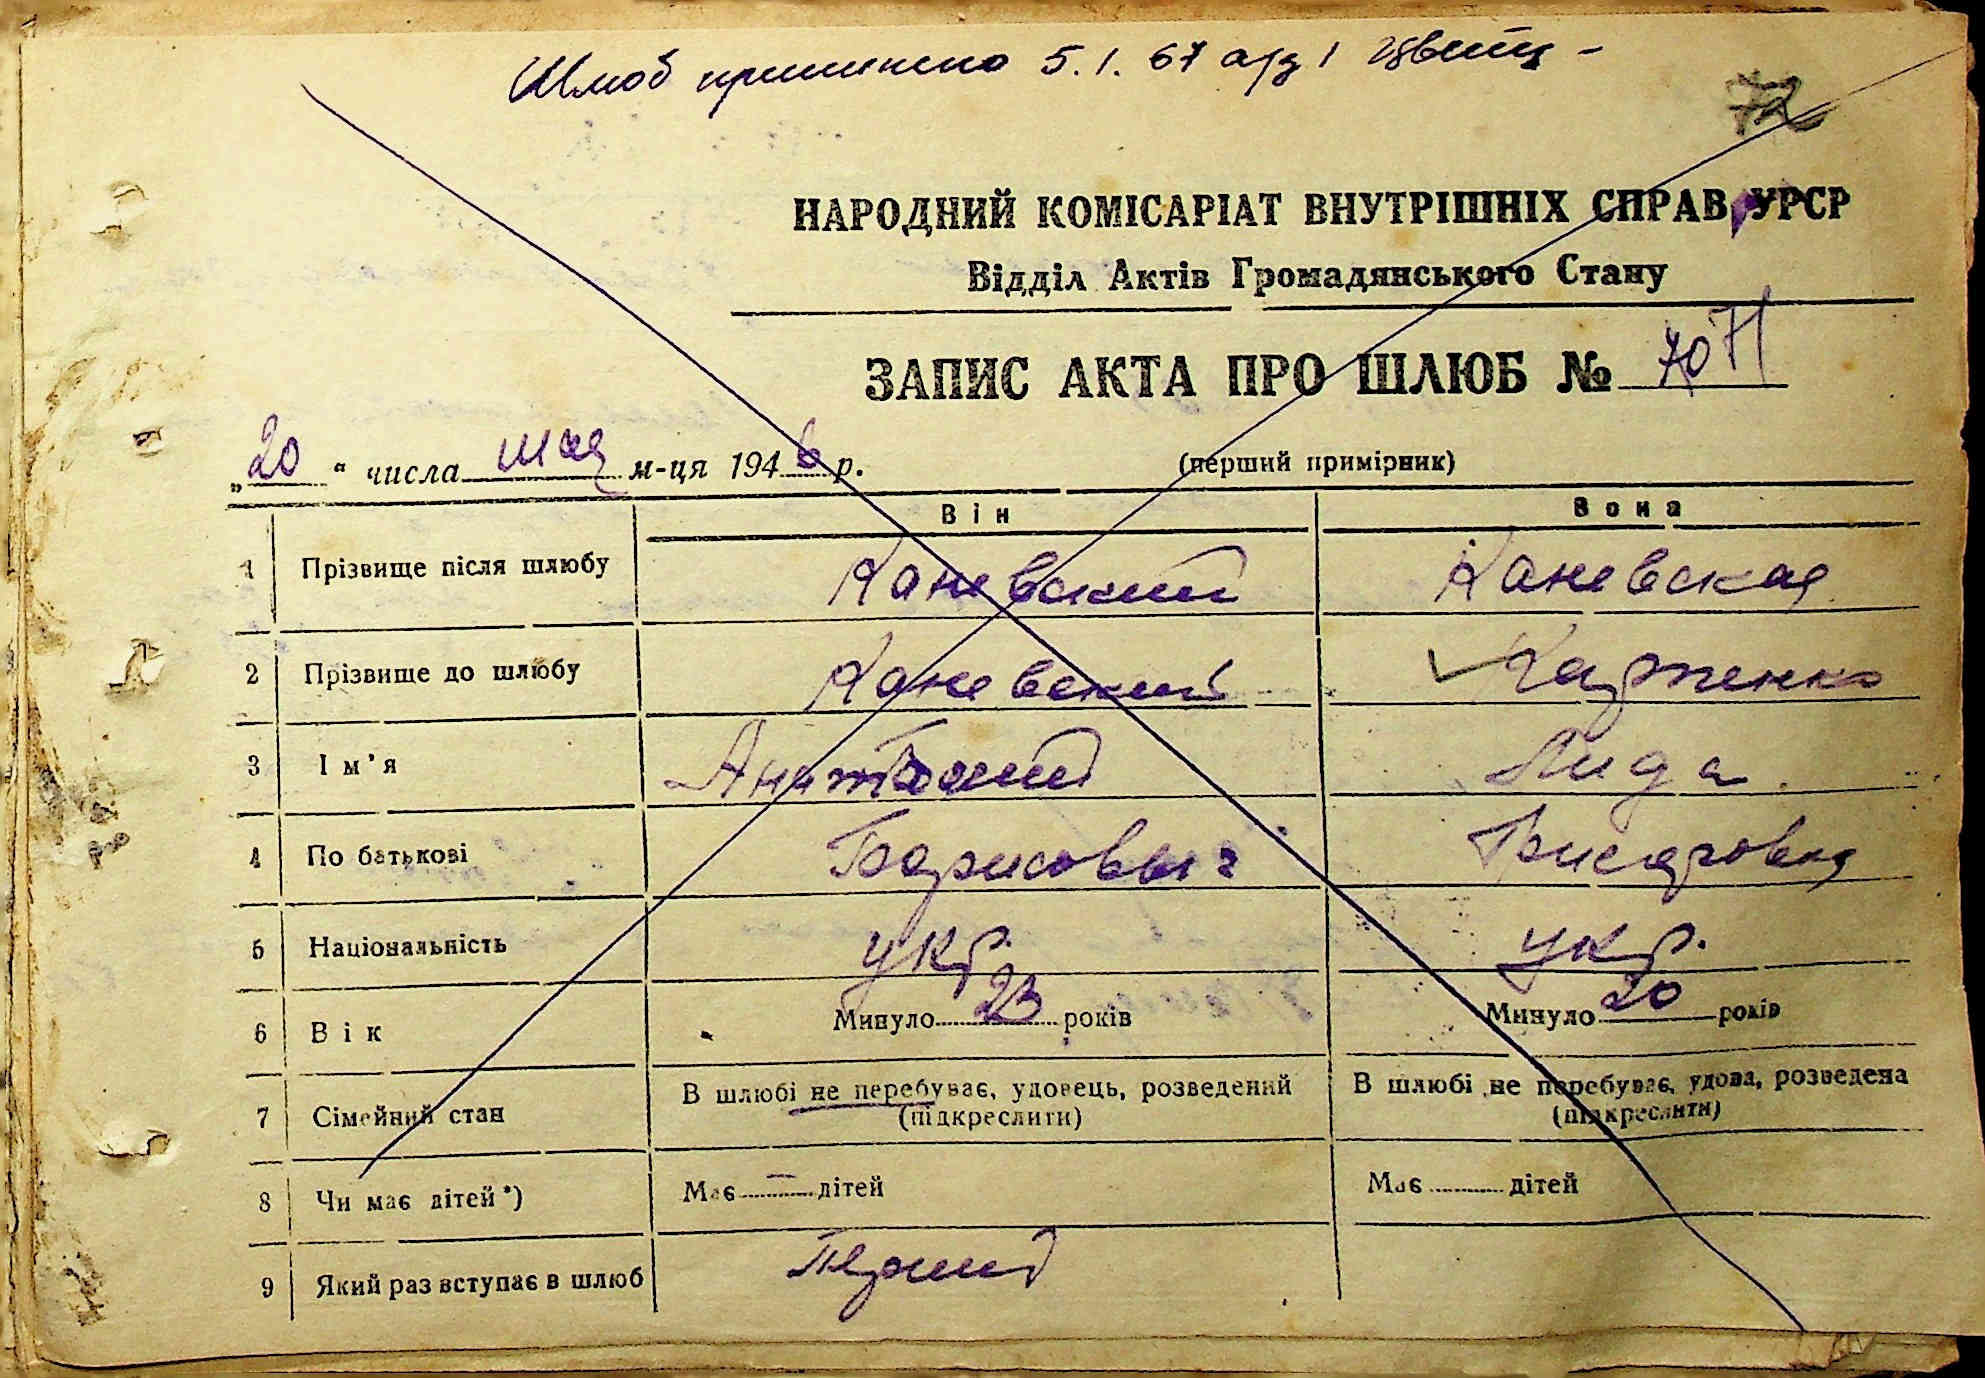 Шлюб припинено 5.1.67 а/з 1
72
НАРОДНИЙ КОМІСАРІАТ ВНУТРІШНІХ СПРАВ УРСР
Відділ Актів Громадянського Стану
ЗАПИС АКТА ПРО ШЛЮБ № 7071
„20" числа мая м-ця 1946 р. (перший примірник)
Він Вона
1 Прізвище після шлюбу Каневский Каневская
2 Прізвище до шлюбу Каневский Карпенко
3 Ім'я Лида
4 По батькові Борисовыч
5 Національність укр. укр.
6 Вік Минуло 23 років Минуло 20 років
7 Сімейний стан В шлюбі не перебуває, удовець, розведений В шлюбі не перебуває, удова, розведена
(підкреслити) (підкреслити)
8 Чи має дітей*) Має — дітей Має дітей
9 Який раз вступає в шлюб Первий